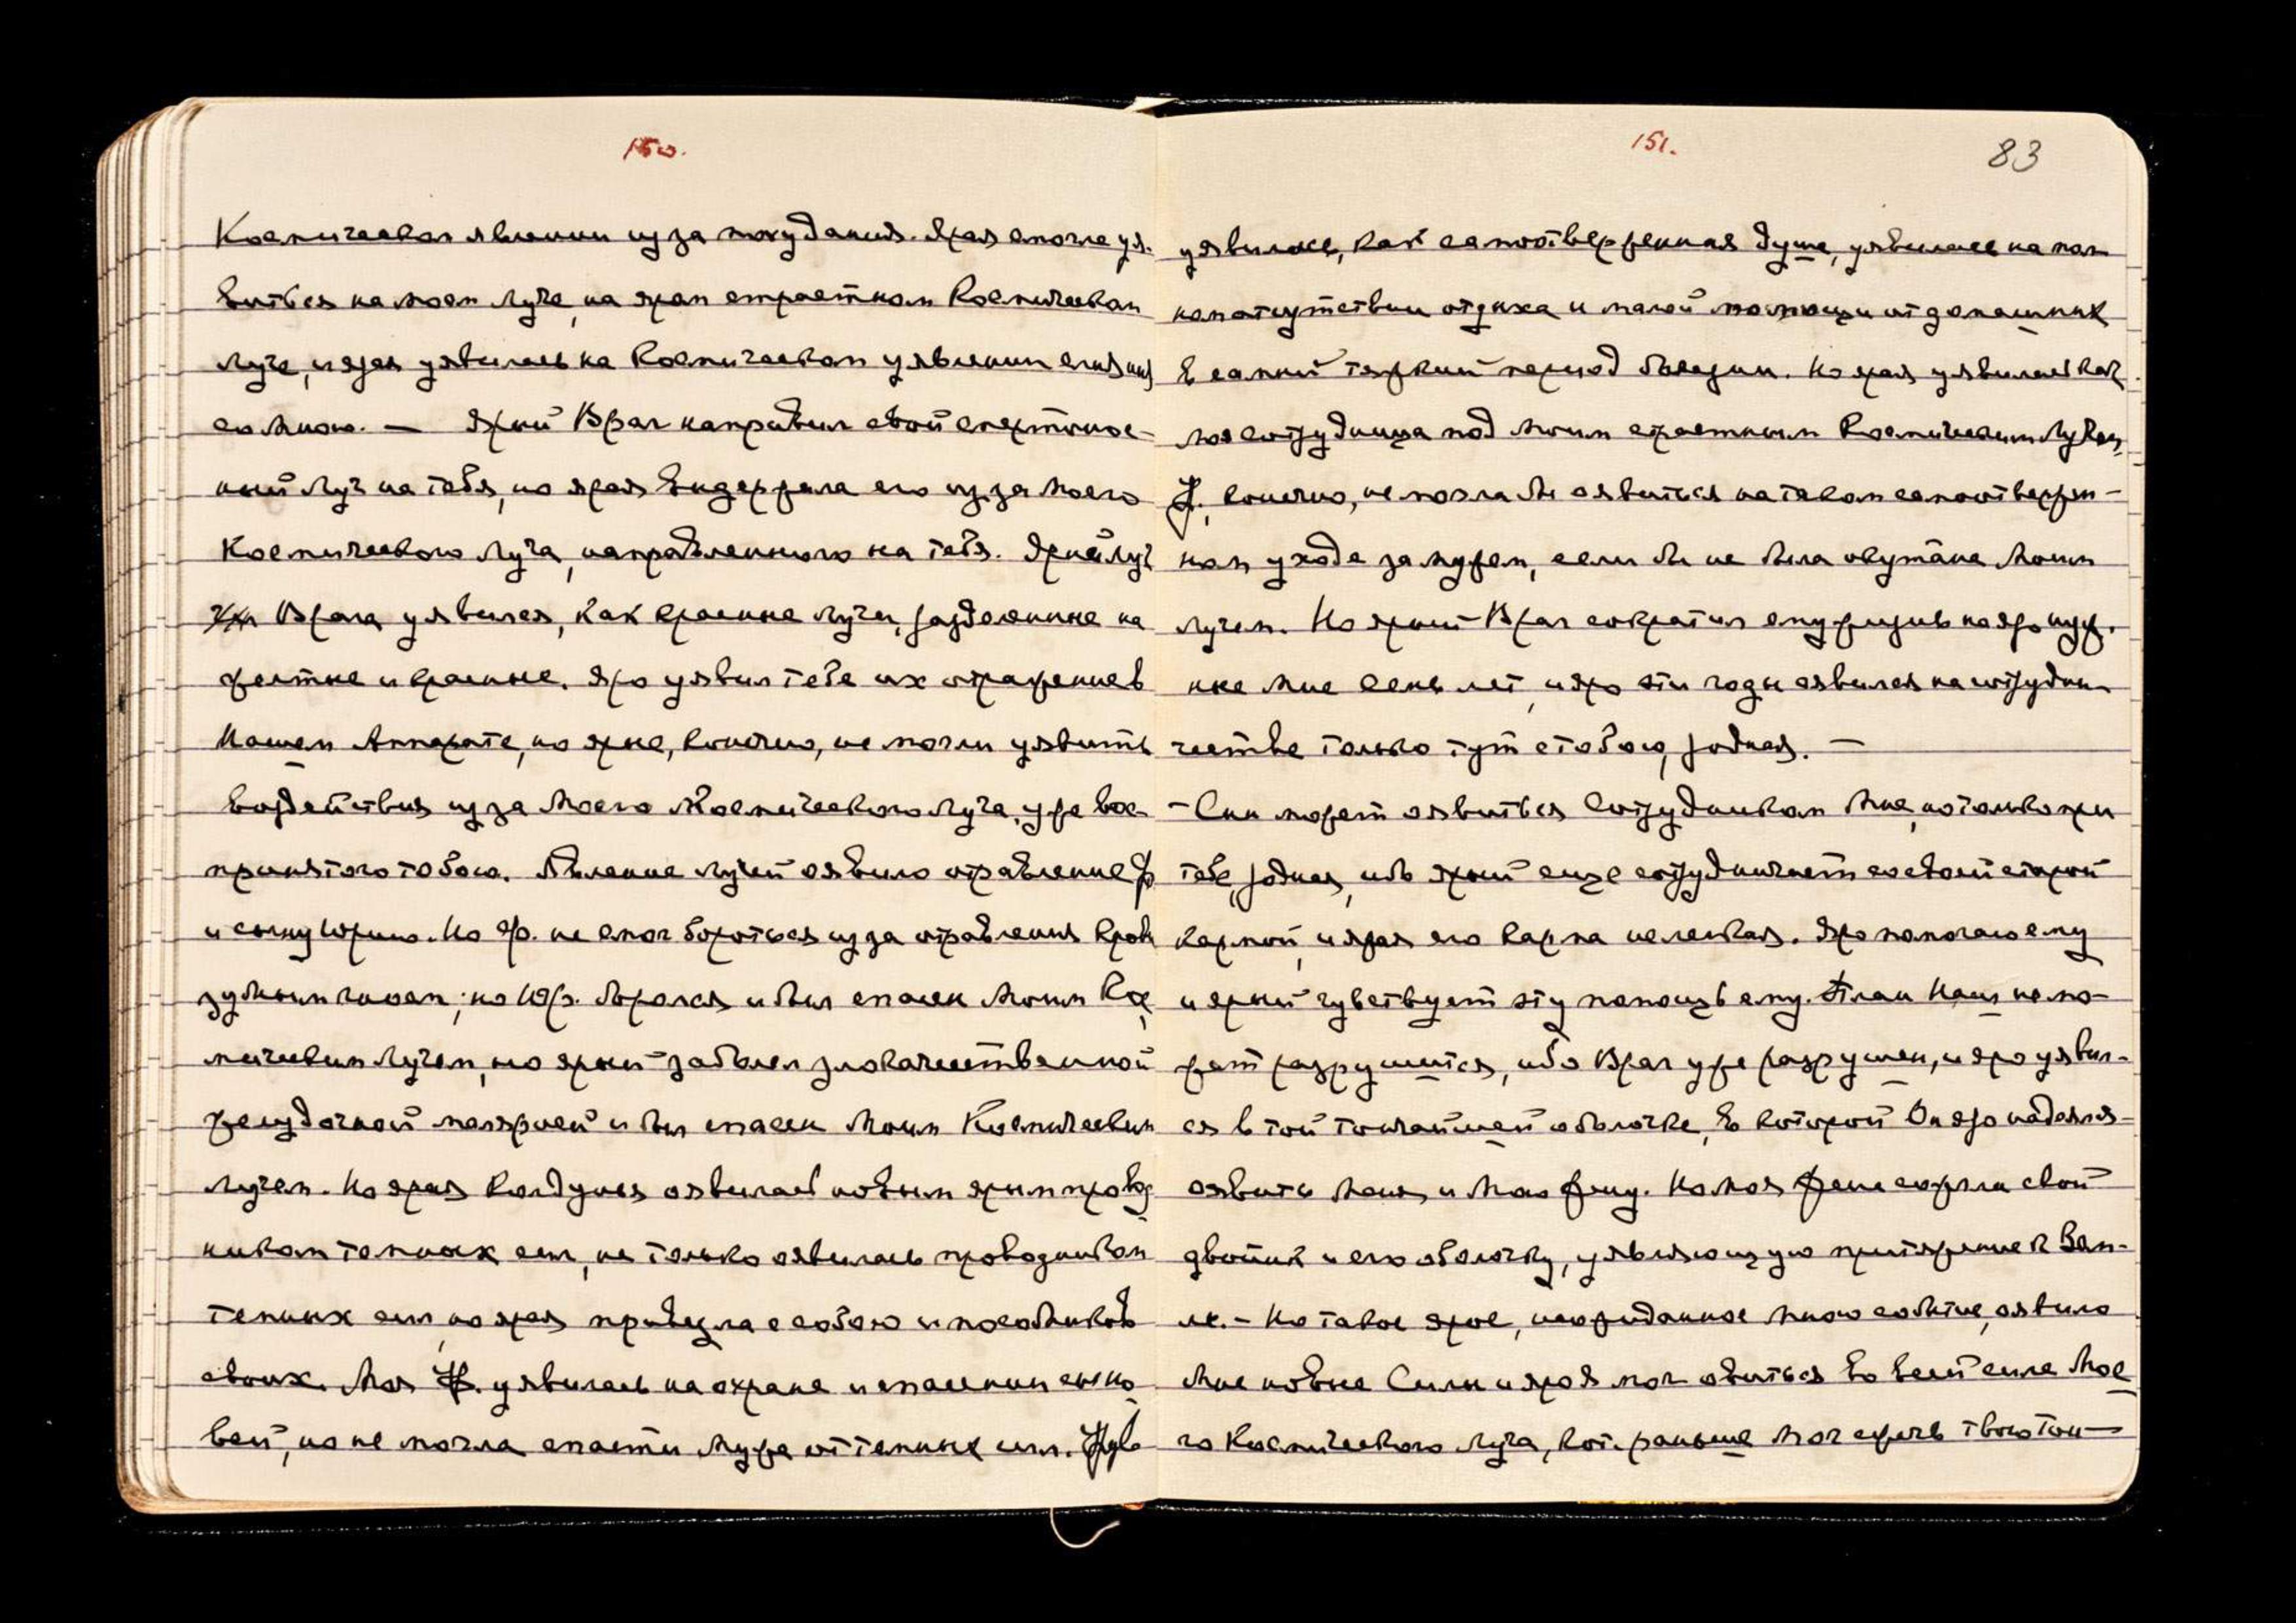 150.
Космическом явлении из за похудания. Ярая смогла уя-
виться на моем Луче, на яром страстном Космическом
Луче, и ярая уявилась на Космическом уявлении слияния
со Мною. — Ярый Враг направил свой смертонос-
ный Луч на тебя, но ярая выдержала его из за Моего
Космического Луча, направленного на тебя. Ярый луч
Врага уявился, как красные лучи, разделенные на
желтые и красные. Яро уявил тебе их отражение в
Нашем Аппарате, но ярые, конечно, не могли уявить
воздействия из за Моего Космического Луча, уже вос-
принятого тобою. Явление лучей оявило отравление
и сыну Юрию. Но не смог бороться из за отравления кров
но Юр. боролся и был спасен Моим Кос
мическим Лучем, но ярый заболел злокачественной
желудочной малярией и был спасен Моим Космическим
Лучем. Но ярая колдунья оявилась новым ярым провод
ником темных сил, не только оявилась проводником
темных сил, но ярая привезла с собою и пособников
своих. Моя уявилась на охране и спасении сыно
вей, но не могла спасти Мужа от темных сил.
151.
83
уявилась, как самоотверженная душа, уявилась на пол
ном отсутствии отдыха и малой помощи от домашних
в самый тяжкий период болезни. Но ярая уявилась как
Моя сотрудница под Моим страстным Космическим Лучем,
конечно, не могла бы оявиться на таком самоотвержен-
ном уходе за мужем, если бы не была окутана Моим
Лучем. Но ярый Враг сократил ему жизнь на яро нуж-
ные Мне семь лет, и яро эти годы оявился на сотрудни-
честве только тут с тобою, родная. —
— Сын может оявиться Сотрудником Мне, но только при
тебе, родная, ибо ярый еще сотрудничает со своей старой
кармой, и ярая его карма нелегкая. Яро помогаю ему
и ярый чувствует эту помощь ему. План Наш не мо-
жет разрушиться, ибо Враг уже разрушен, и яро уявил-
ся в той тончайшей оболочке, в которой Он яро надеялся
оявить Меня и Мою Жену. Но Моя Жена сожгла свой
двойник и его оболочку, уявляющую притяжение к Зем-
ле. — Но такое ярое, неожиданное Мною событие, оявило
Мне новые Силы и яро Я мог явиться во всей силе Мое
го Космического Луча, кот. раньше Мог сжечь твою тон—